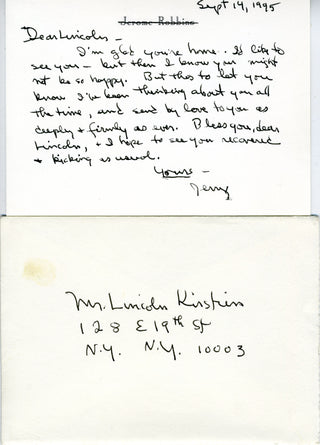 Sept 14, 1995
Jerome Robbins
Dear Lincoln –
I'm glad you're home. I'd like to
see you – but then I know you might
not be so happy. But this to let you
know I've been thinking about you all
the time, and send by love to you as
deeply & firmly as ever. Bless you, dear
Lincoln, & I hope to see you recovered
& kicking as usual.
Yours –
Jerry
Mr. Lincoln Kirstein
128 E 19th St
N.Y. N.Y. 10003